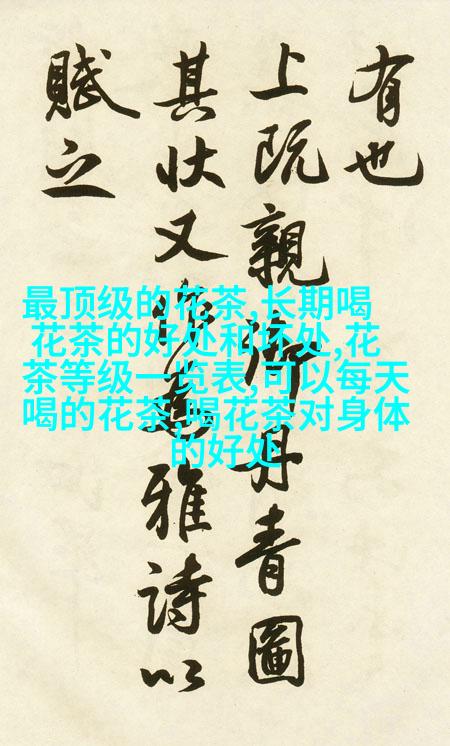 有也
上既親御丹青圖
其状又雅詩以
賦之
最顶级的花茶,长期喝
花茶的好处和坏处,花
茶等级一览表,可以每天
喝的花茶,喝花茶对身体
的好处